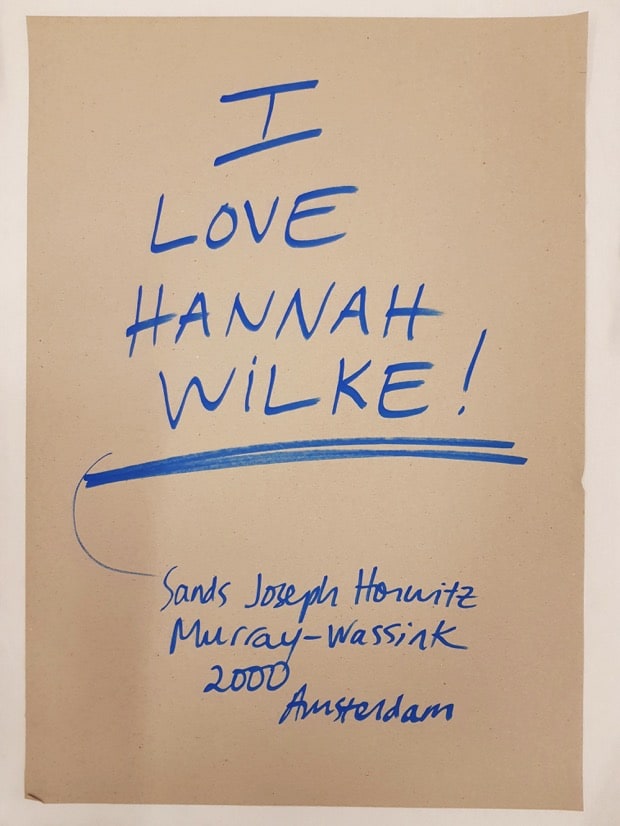 I
LOVE
HANNAH
WiLKE!
Sands Joseph Horwitz
Murray-Wassink
2000
Amsterdam